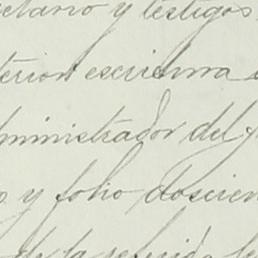 cretario y testigos
terior escritura
dministrador del
s y folio doscien
de la referida